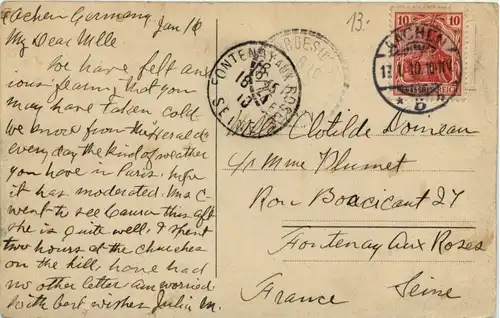 Aachen Germany
Jan/10
My Dear Mlle
We have felt anx
ious fearing that you
may have taken cold
we know from the Herald
every day the kind of weather
you have in Paris. hope
it has moderated. Mrs C
went to see Laura this aft
she is quite well. I spent
two hours at the churches
on the hill, have had
no other letter. am worried
With best wishes Julia M.
13.
10 10
AACHEN
FONTENAY AUX ROSES
SEINE
Mlle Clotilde Domeau
c/o Mme Plumet
Rou Boucicaut 27
Fontenay Aux Roses
Seine
France